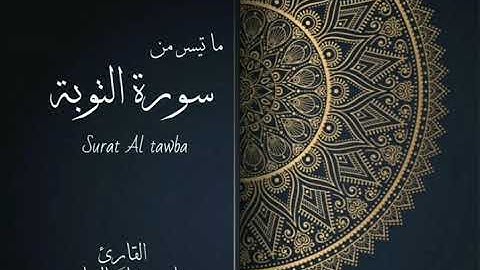 ما تيسر من
سورة التوبة
Surat Al tawba
القارئ